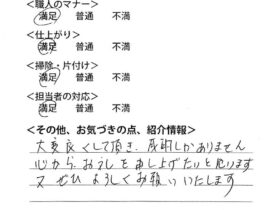 <職人のマナー>
満足 普通 不満
<仕上がり>
満足 普通 不満
<掃除・片付け>
満足 普通 不満
<担当者の対応>
満足 普通 不満
<その他、お気づきの点、紹介情報>
大変良くして頂き、感謝しかありません
心から お礼を申し上げたいと思います
又 ぜひ よろしくお願いいたします